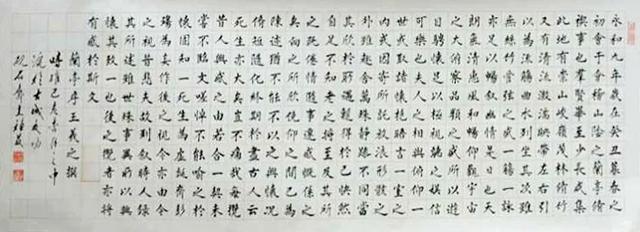 永和九年歲在癸丑暮春之
初會于會稽山陰之蘭亭脩
禊事也群賢畢至少長咸集
此地有崇山峻嶺茂林脩竹
又有清流激湍映帶左右引
以為流觴曲水列坐其次雖
無絲竹管弦之盛一觴一詠
亦足以暢敘幽情是日也天
朗氣清惠風和暢仰觀宇宙
之大俯察品類之盛所以遊
目騁懷足以極視聽之娛信
可樂也夫人之相與俯仰一
世或取諸懷抱悟言一室之
內或因寄所託放浪形骸之
外雖趣舍萬殊靜躁不同當
其欣於所遇暫得於己快然
自足不知老之將至及其所
之既惓情隨事遷感慨係之
矣向之所欣俛仰之間已為
陳迹猶不能不以之興懷況
脩短隨化終期於盡古人云
死生亦大矣豈不痛哉每攬
昔人興感之由若合一契未
嘗不臨文嗟悼不能喻之於
懷固知一死生為虛誕齊彭
殤為妄作後之視今亦由今
之視昔悲夫故列敘時人錄
其所述雖世殊事異所以興
懷其致一也後之攬者亦將
有感於斯文
蘭亭序王羲之撰
時維己亥